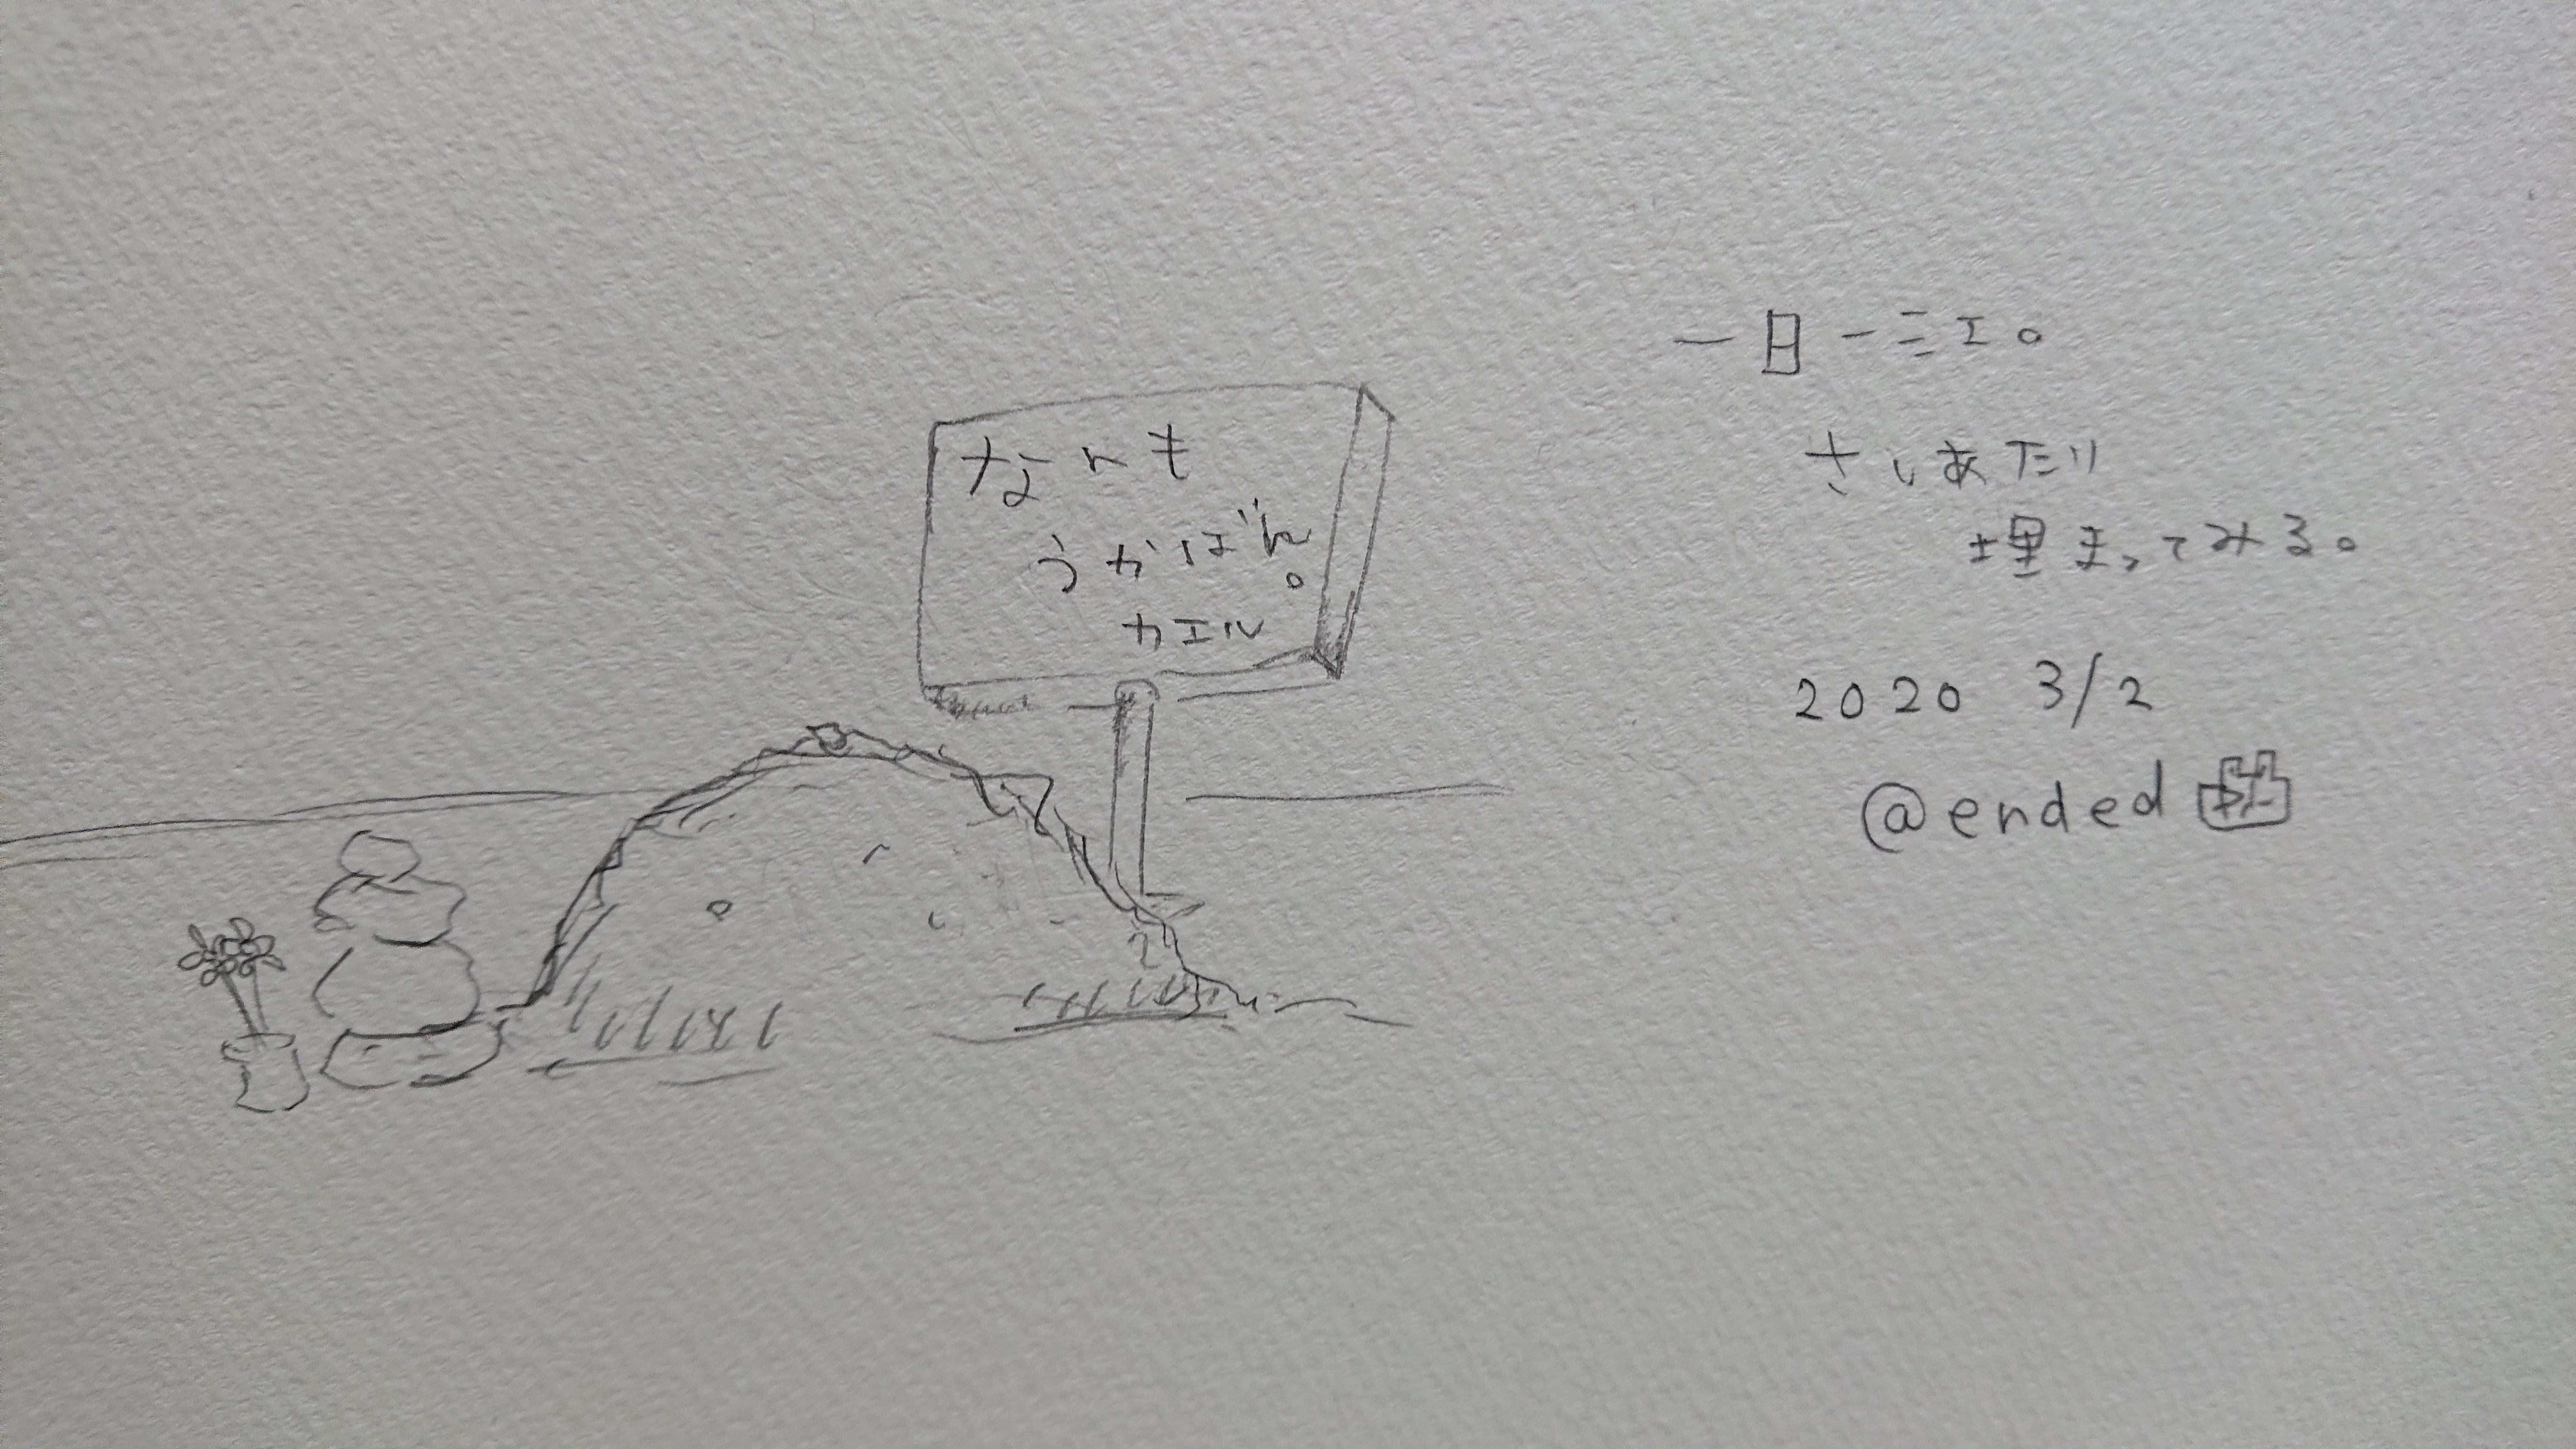 なんも
うかばん。
カエル
一日一ミエ。
さしあたり
埋まってみる。
2020 3/2
@ended